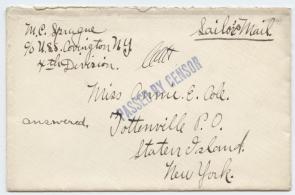 M.C. Sprague
℅ U.S.S. Covington N.Y.
4th Division.
Sailor's Mail
PASSED BY CENSOR
Miss Annie E. Cole.
answered.
Tottenville P.O.
Staten Island.
New York.